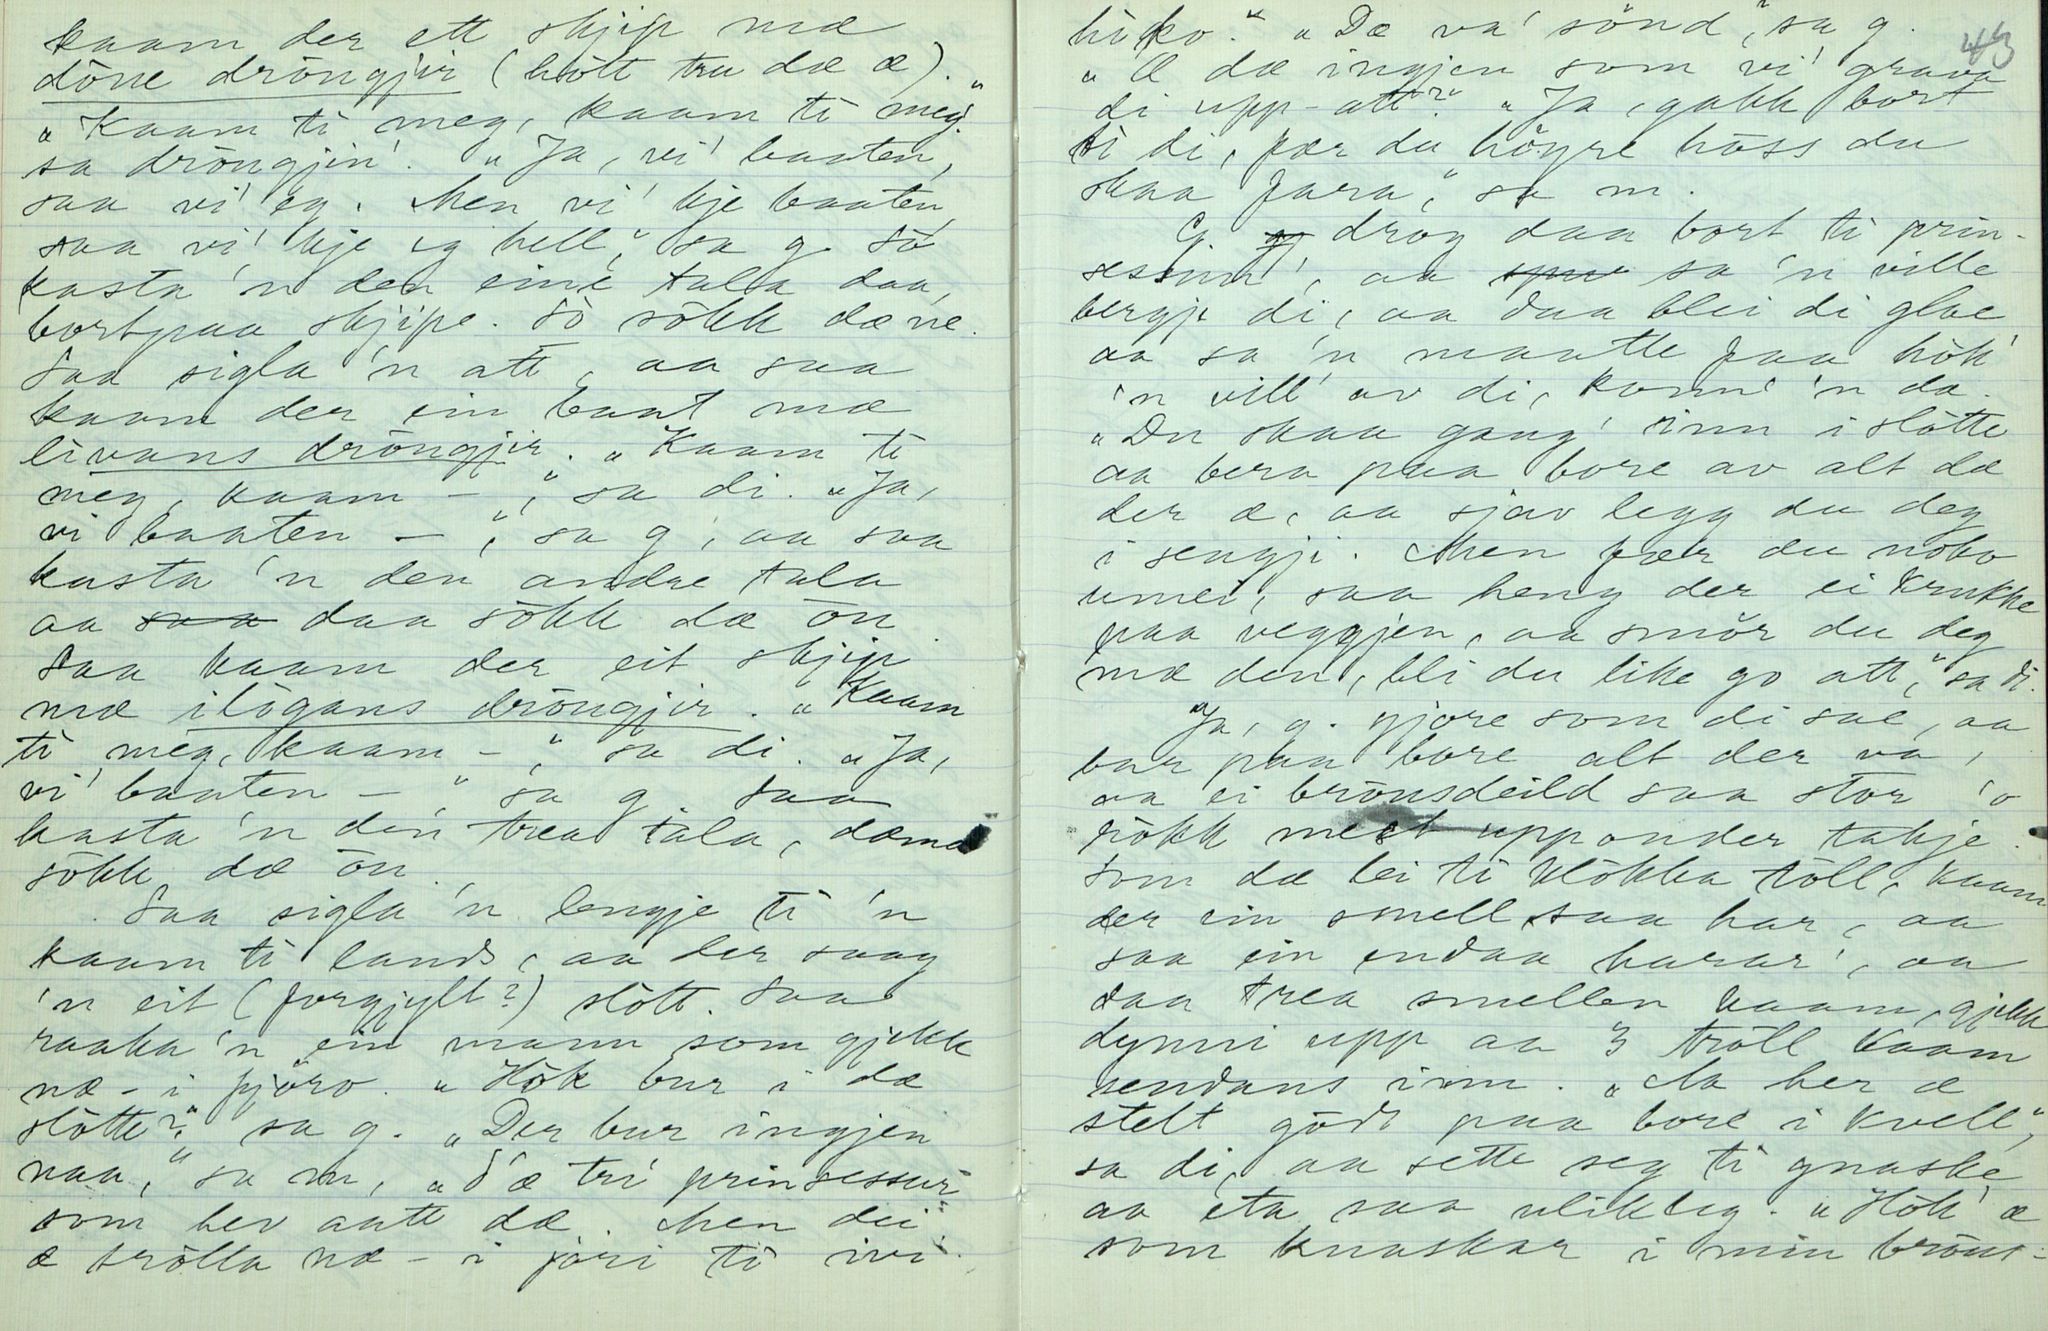 kaam der ett skjip mæ
döne dröngjir (hött tru dæ æ)."
„Kaam ti meg, kaam ti meg"
sa dröngjin'. „Ja, vi' baaten,
saa vi' eg. Men vi' kje baaten,
saa vi' kje eg hell", sa g. Så
kasta 'n den eine tala daa,
bortpaa skjipe. Så sökk dæ ne.
Saa sigla 'n att, aa saa
kaam der ein baat mæ
livans dröngjir. „Kaam ti
meg, kaam –", sa di. „Ja,
vi baaten –", sa g, aa saa
kasta 'n den andre tala
aa saa daa sökk dæ ön
Saa kaam der eit skjip
mæ ilögans dröngjir. „Kaam
ti meg, kaam –", sa di. „Ja,
vi' baaten –" sa g. Saa
kasta 'n den trea tala, dæmæ
sökk dæ ön.
Saa sigla 'n lengje ti 'n
kaam ti lands, aa der saag
'n eit (forgjylt?) slött. Saa
raaka 'n ein mann som gjekk
næ-i fjöro. „Hök bur i dæ
slötte?" sa g. „Der bur ingjen
naa," sa m, „d'æ tri prinsessur
som hev aatt dæ. Men dei
æ trölla næ-i jöri ti ivi
hiko." „Dæ va' sönd," sa g.
„Æ dæ ingjen som vi' grava
di upp-att?" „Ja, gakk bort
ti di, fær du höyre höss du
skaa fara," sa m.
G. drog daa bort ti prin-
sessun', aa sa 'n ville
bergje di, aa daa blei di glae
aa sa 'n maatte faa hök'
'n vill' av di, konn' 'n da.
„Du skaa gang' inn i slötte
aa bera paa bore av alt dæ
der æ, aa sjav legg du deg
i sengji. Men fær du nöko
umei, saa heng der ei krukke
paa veggjen, aa smör du deg
mæ den, bli du like go att," sa di.
Ja, g. gjore som di sae, aa
bar paa bore alt der va,
aa ei brönsdeild saa stor 'o
rökk mest upponder takje.
Som dæ lei ti klökka töll, kaam
der ein smell saa har, aa
saa ein endaa harar', aa
daa trea smellen kaam, gjekk
dynni upp aa 3 tröll kaam
sendans inn. „Na her æ
stelt gödt paa bore i kvell",
sa di, aa sette seg ti gnaske
aa eta saa uliktig. „Hök' æ
som knaskar i min bröns-
43